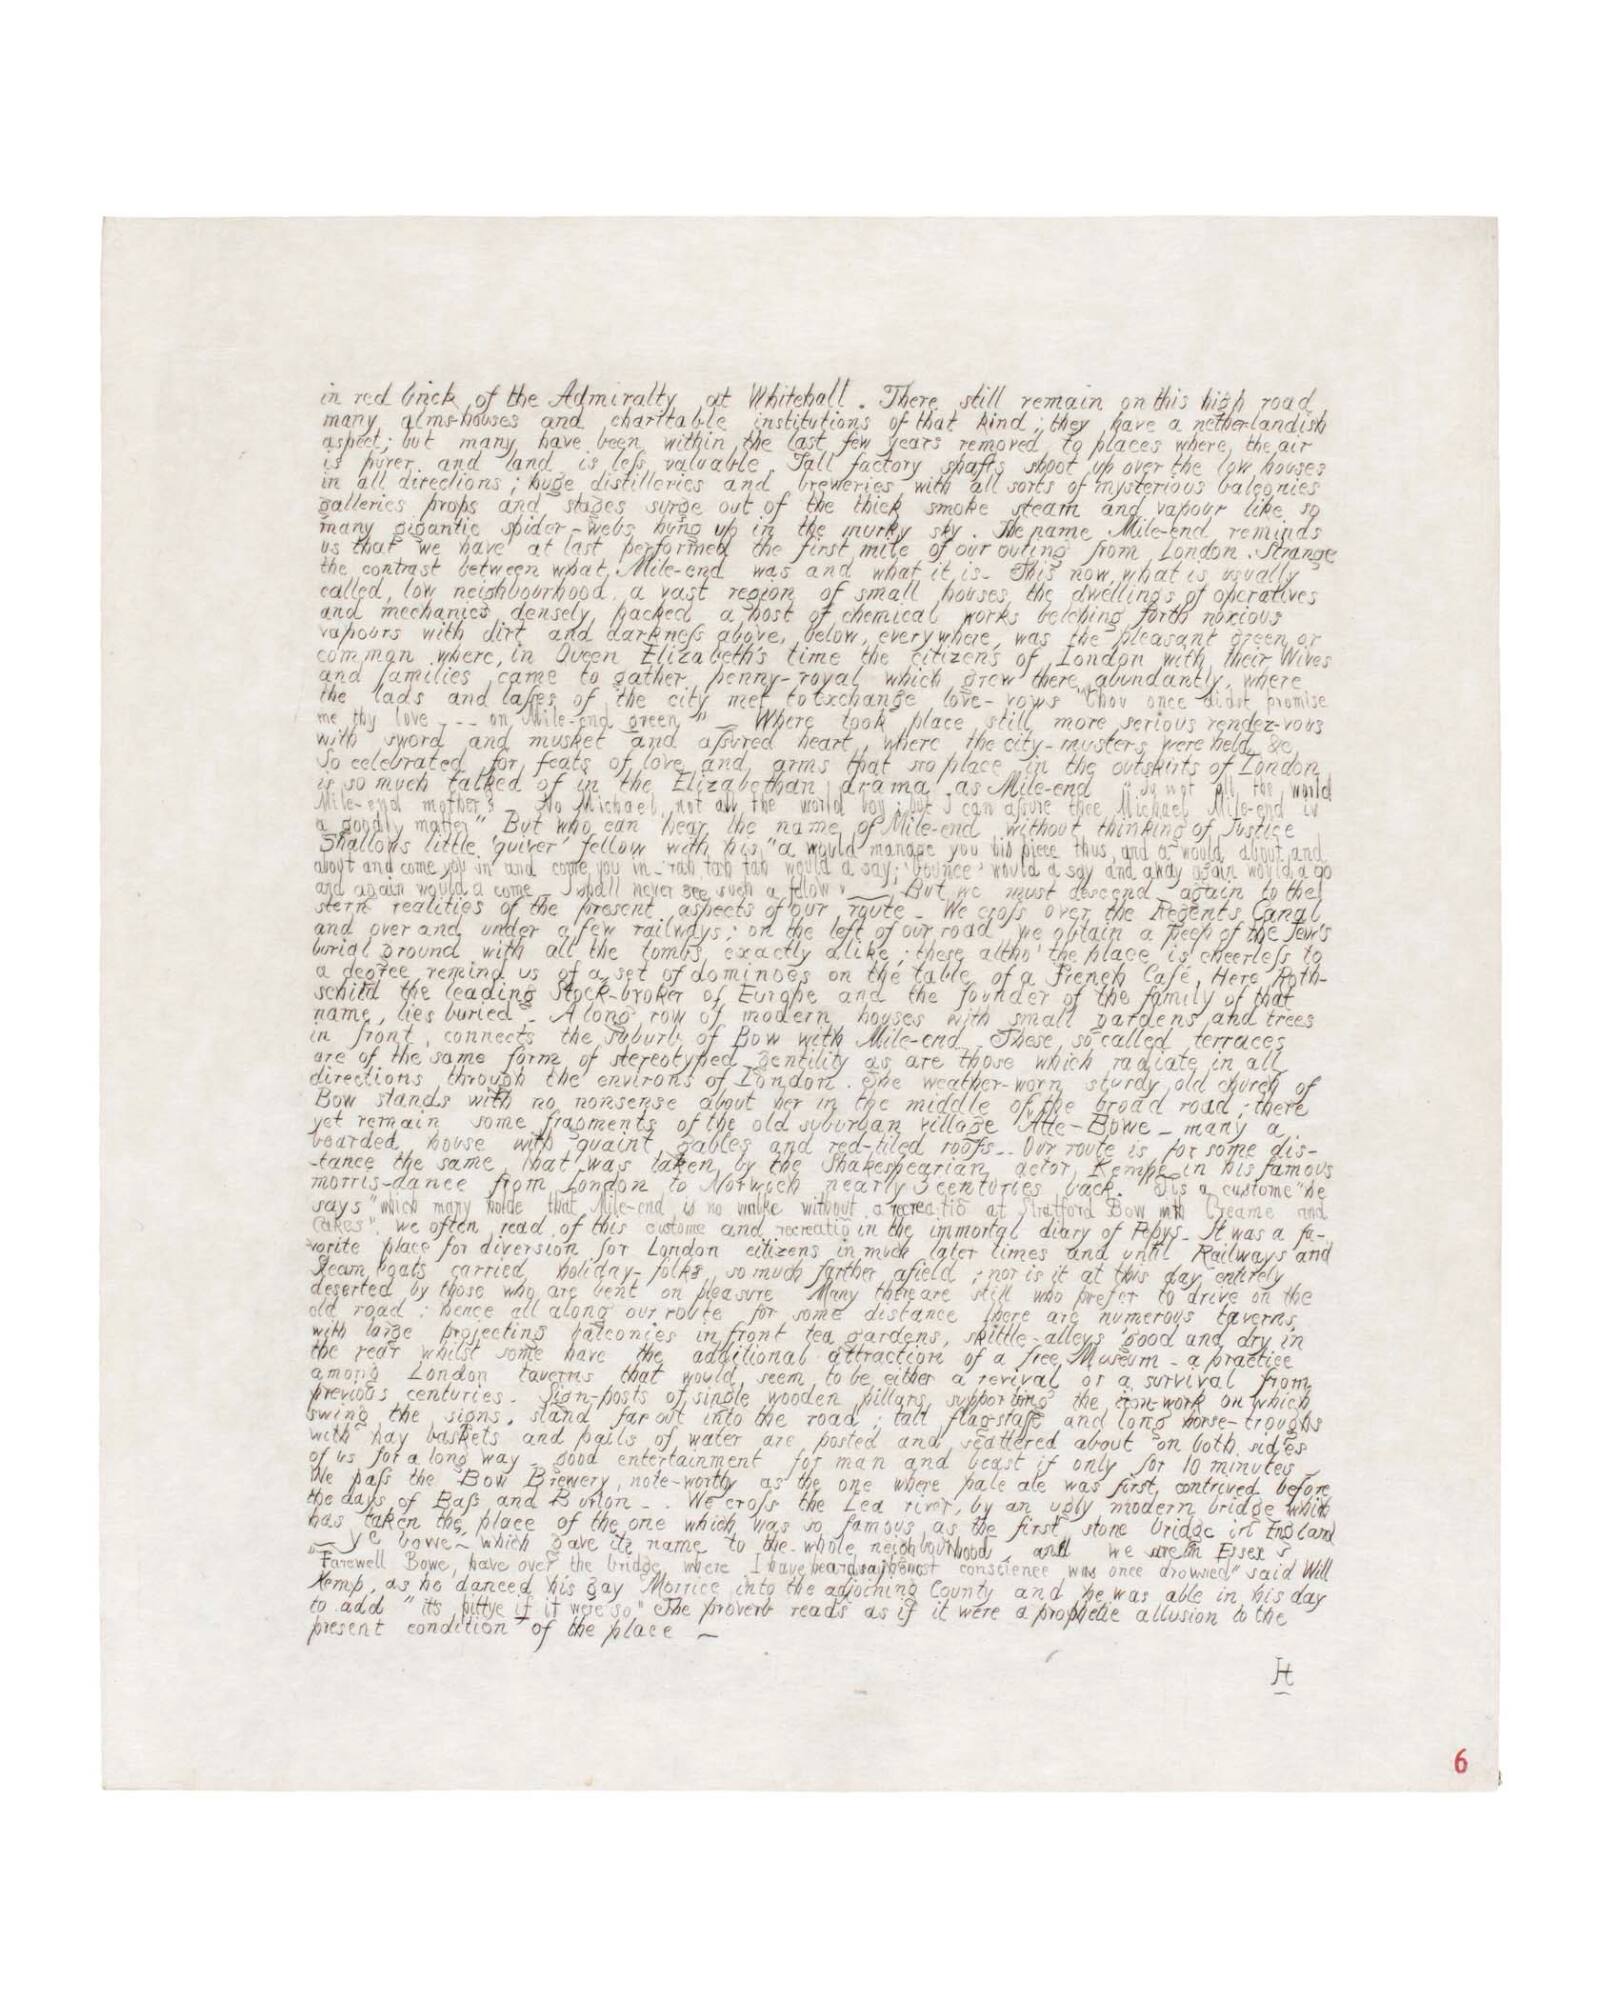 in red brick of the Admiralty at Whitehall. There still remain on this high road
many alms-houses and charitable institutions of that kind; they have a netherlandish
aspect; but many have been within the last few years removed to places where the air
is purer and land is leſs valuable. Tall factory shafts shoot up over the low houses
in all directions; huge distilleries and breweries with all sorts of mysterious balconies
galleries props and stages surge out of the thick smoke steam and vapour like so
many gigantic spider-webs hung up in the murky sky. The name Mile-end reminds
us that we have at last performed the first mile of our outing from London. Strange
the contrast between what Mile-end was and what it is. This now, what is usually
called, low neighbourhood, a vast region of small houses, the dwellings of operatives
and mechanics densely packed a host of chemical works belching forth noxious
vapours with dirt and darkneſs above, below, everywhere, was the pleasant green or
common where, in Queen Elizabeth's time the citizens of London with their Wives
and families came to gather penny-royal which grew there abundantly, where
the lads and laſses of the city met to exchange love-vows "Thou once didst promise
me thy love - - on Mile-end green" — Where took place still more serious rendez-vous
with sword and musket and aſsured heart, where the city-musters were held &c
So celebrated for feats of love and arms that no place in the outskirts of London
is so much talked of in the Elizabethan drama as Mile-end "Is not all the world
Mile-end mother? No Michael, not all the world boy; but I can aſsure thee Michael Mile-end is
a goodly matter". But who can hear the name of Mile-end without thinking of Justice
Shallow's little 'quiver' fellow with his "a would manage you his piece thus, and a would about and
about and come you in and come you in - rah tah tah would a say; 'bounce' would a say and away again would a go
and again would a come - I shall never see such a fellow" — But we must descend again to the
stern realities of the present aspects of our route - We croſs over the Regents Canal
and over and under a few railways; on the left of our road we obtain a peep of the Jew's
burial ground with all the tombs exactly alike; these altho' the place is cheerleſs to
a degree remind us of a set of dominoes on the table of a French Café. Here Roth-
schild the leading Stock-broker of Europe and the founder of the family of that
name, lies buried - A long row of modern houses with small gardens and trees
in front, connects the suburb of Bow with Mile-end. These, so called terraces
are of the same form of stereotyped gentility as are those which radiate in all
directions through the environs of London. The weather-worn sturdy old church of
Bow stands with no nonsense about her in the middle of the broad road; there
yet remain some fragments of the old suburban village Atte-Bowe - many a
boarded house with quaint gables and red-tiled roofs - Our route is for some dis-
-tance the same that was taken by the Shakespearian actor Kempe in his famous
morris-dance from London to Norwich nearly 3 centuries back. "Tis a custome" he
says "which many holde that Mile-end is no walke without a recreatiō at Stratford Bow with Creame and
Cakes". we often read of this custome and recreatiō in the immortal diary of Pepys - It was a fa-
vorite place for diversion for London citizens in much later times and until Railways and
Steam boats carried holiday-folks so much farther afield; nor is it at this day entirely
deserted by those who are bent on pleasure Many there are still who prefer to drive on the
old road: hence all along our route for some distance there are numerous taverns,
with large projecting balconies in front tea gardens, skittle-alleys good and dry in
the rear whilst some have the additional attraction of a free Museum - a practice
among London taverns that would seem to be either a revival or a survival from
previous centuries. Sign-posts of single wooden pillars supporting the iron-work on which
swing the signs, stand far out into the road; tall flag-staff and long horse-troughs
with hay baskets and pails of water are posted and scattered about on both sides
of us for a long way - good entertainment for man and beast if only for 10 minutes -
We paſs the Bow Brewery, note-worthy as the one where pale ale was first, contrived before
the days of Baſs and Burton - - We croſs the Lea river, by an ugly modern bridge which
has taken the place of the one which was so famous as the first stone bridge in England
— ye bowe - which gave its name to the whole neighbourhood, and we are in Essex
"Farewell Bowe, have over the bridge, where I have heard say honest conscience was once drowned" said Will
Kemp, as he danced his gay Morrice into the adjoining County and he was able in his day
to add "its pittye if it were so" The proverb reads as if it were a prophetic allusion to the
present condition of the place —
H
6